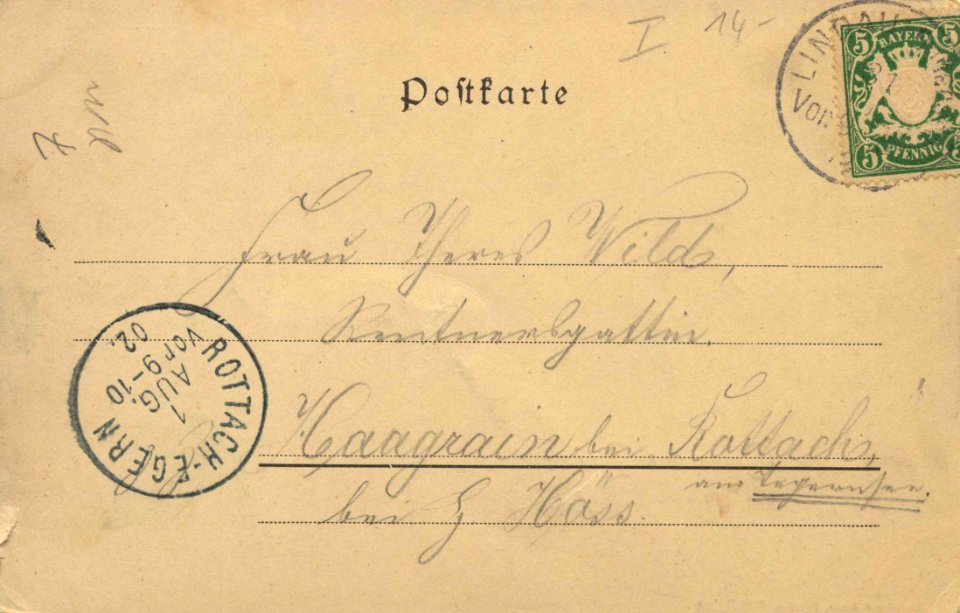 I. 14-
Postkarte
LINDAU
Vor
5 BAYERN 5
5 PFENNIG 5
Frau Theres Wild,
Rentnersgattin.
Haagrain bei Rottach,
am Tegernsee.
bei H Höss.
ROTTACH-EGERN
1 AUG.
Vor 9-10
02.